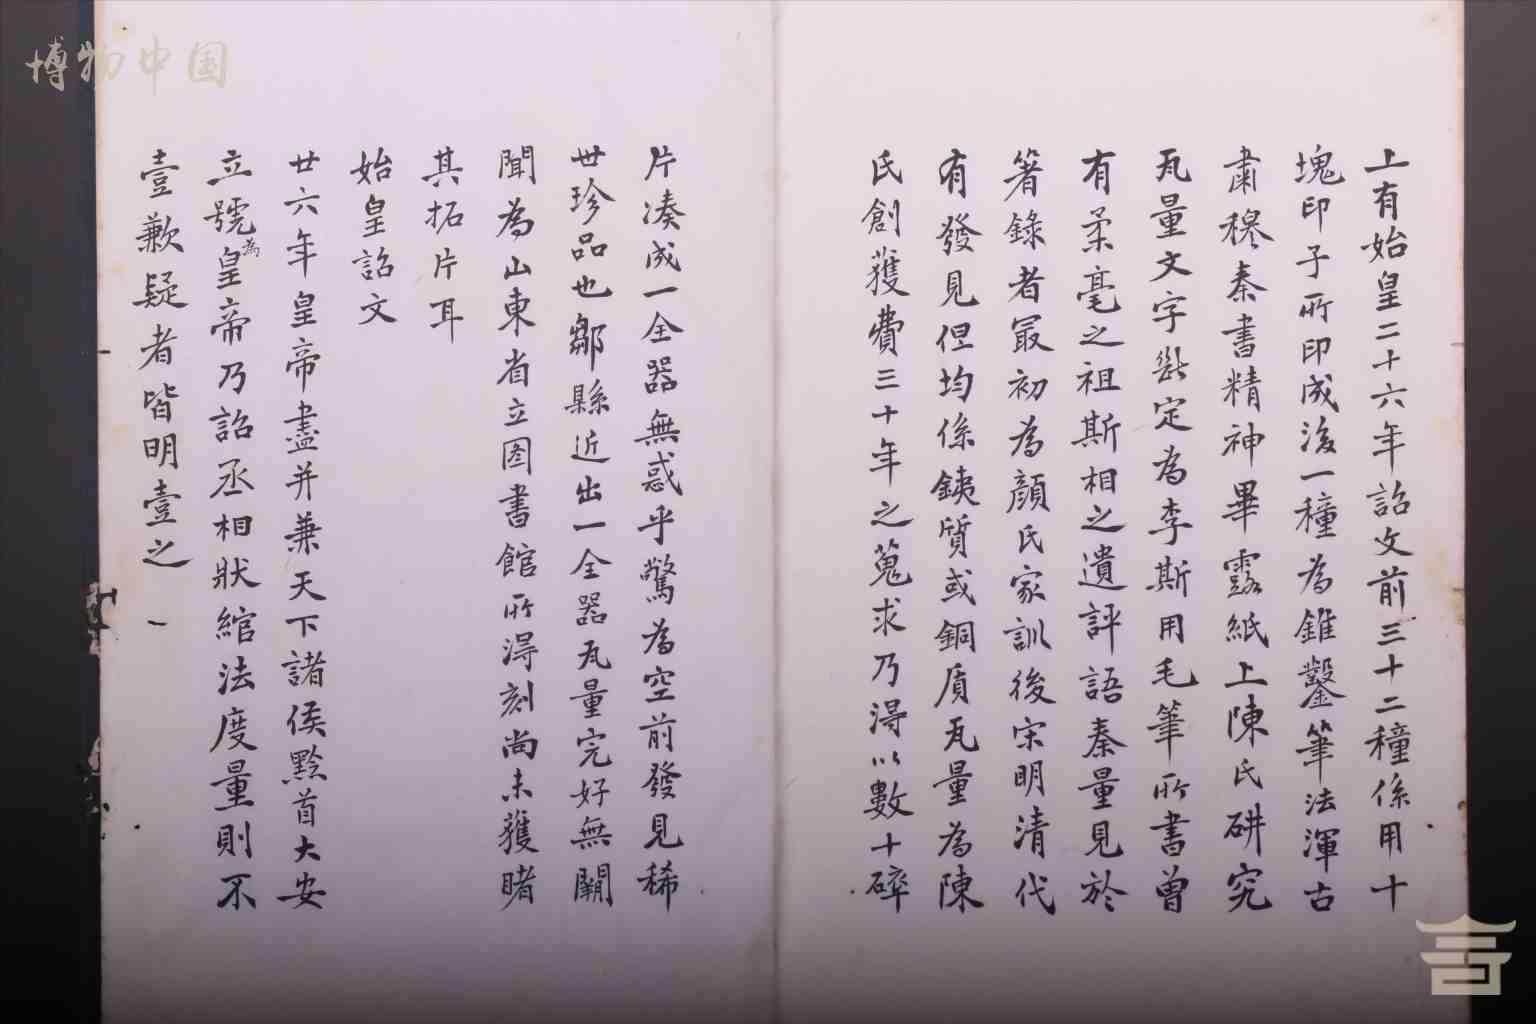 上有始皇二十六年詔文前三十二種係用十
塊印子所印成後一種為錐鑿筆法渾古
肅穆秦書精神畢露紙上陳氏研究
瓦量文字断定為李斯用毛筆所書曾
有柔毫之祖斯相之遺評語秦量見於
著錄者最初為顏氏家訓後宋明清代
有發見但均係鐵質或銅質瓦量為陳
氏創獲費三十年之蒐求乃得以數十碎
片湊成一全器無惑乎驚為空前發見稀
世珍品也鄒縣近出一全器瓦量完好無闕
聞為山東省立图書館所得刻尚未獲睹
其拓片耳
始皇詔文
廿六年皇帝盡并兼天下諸侯黔首大安
立號為皇帝乃詔丞相狀綰法度量則不
壹歉疑者皆明壹之
博物中国